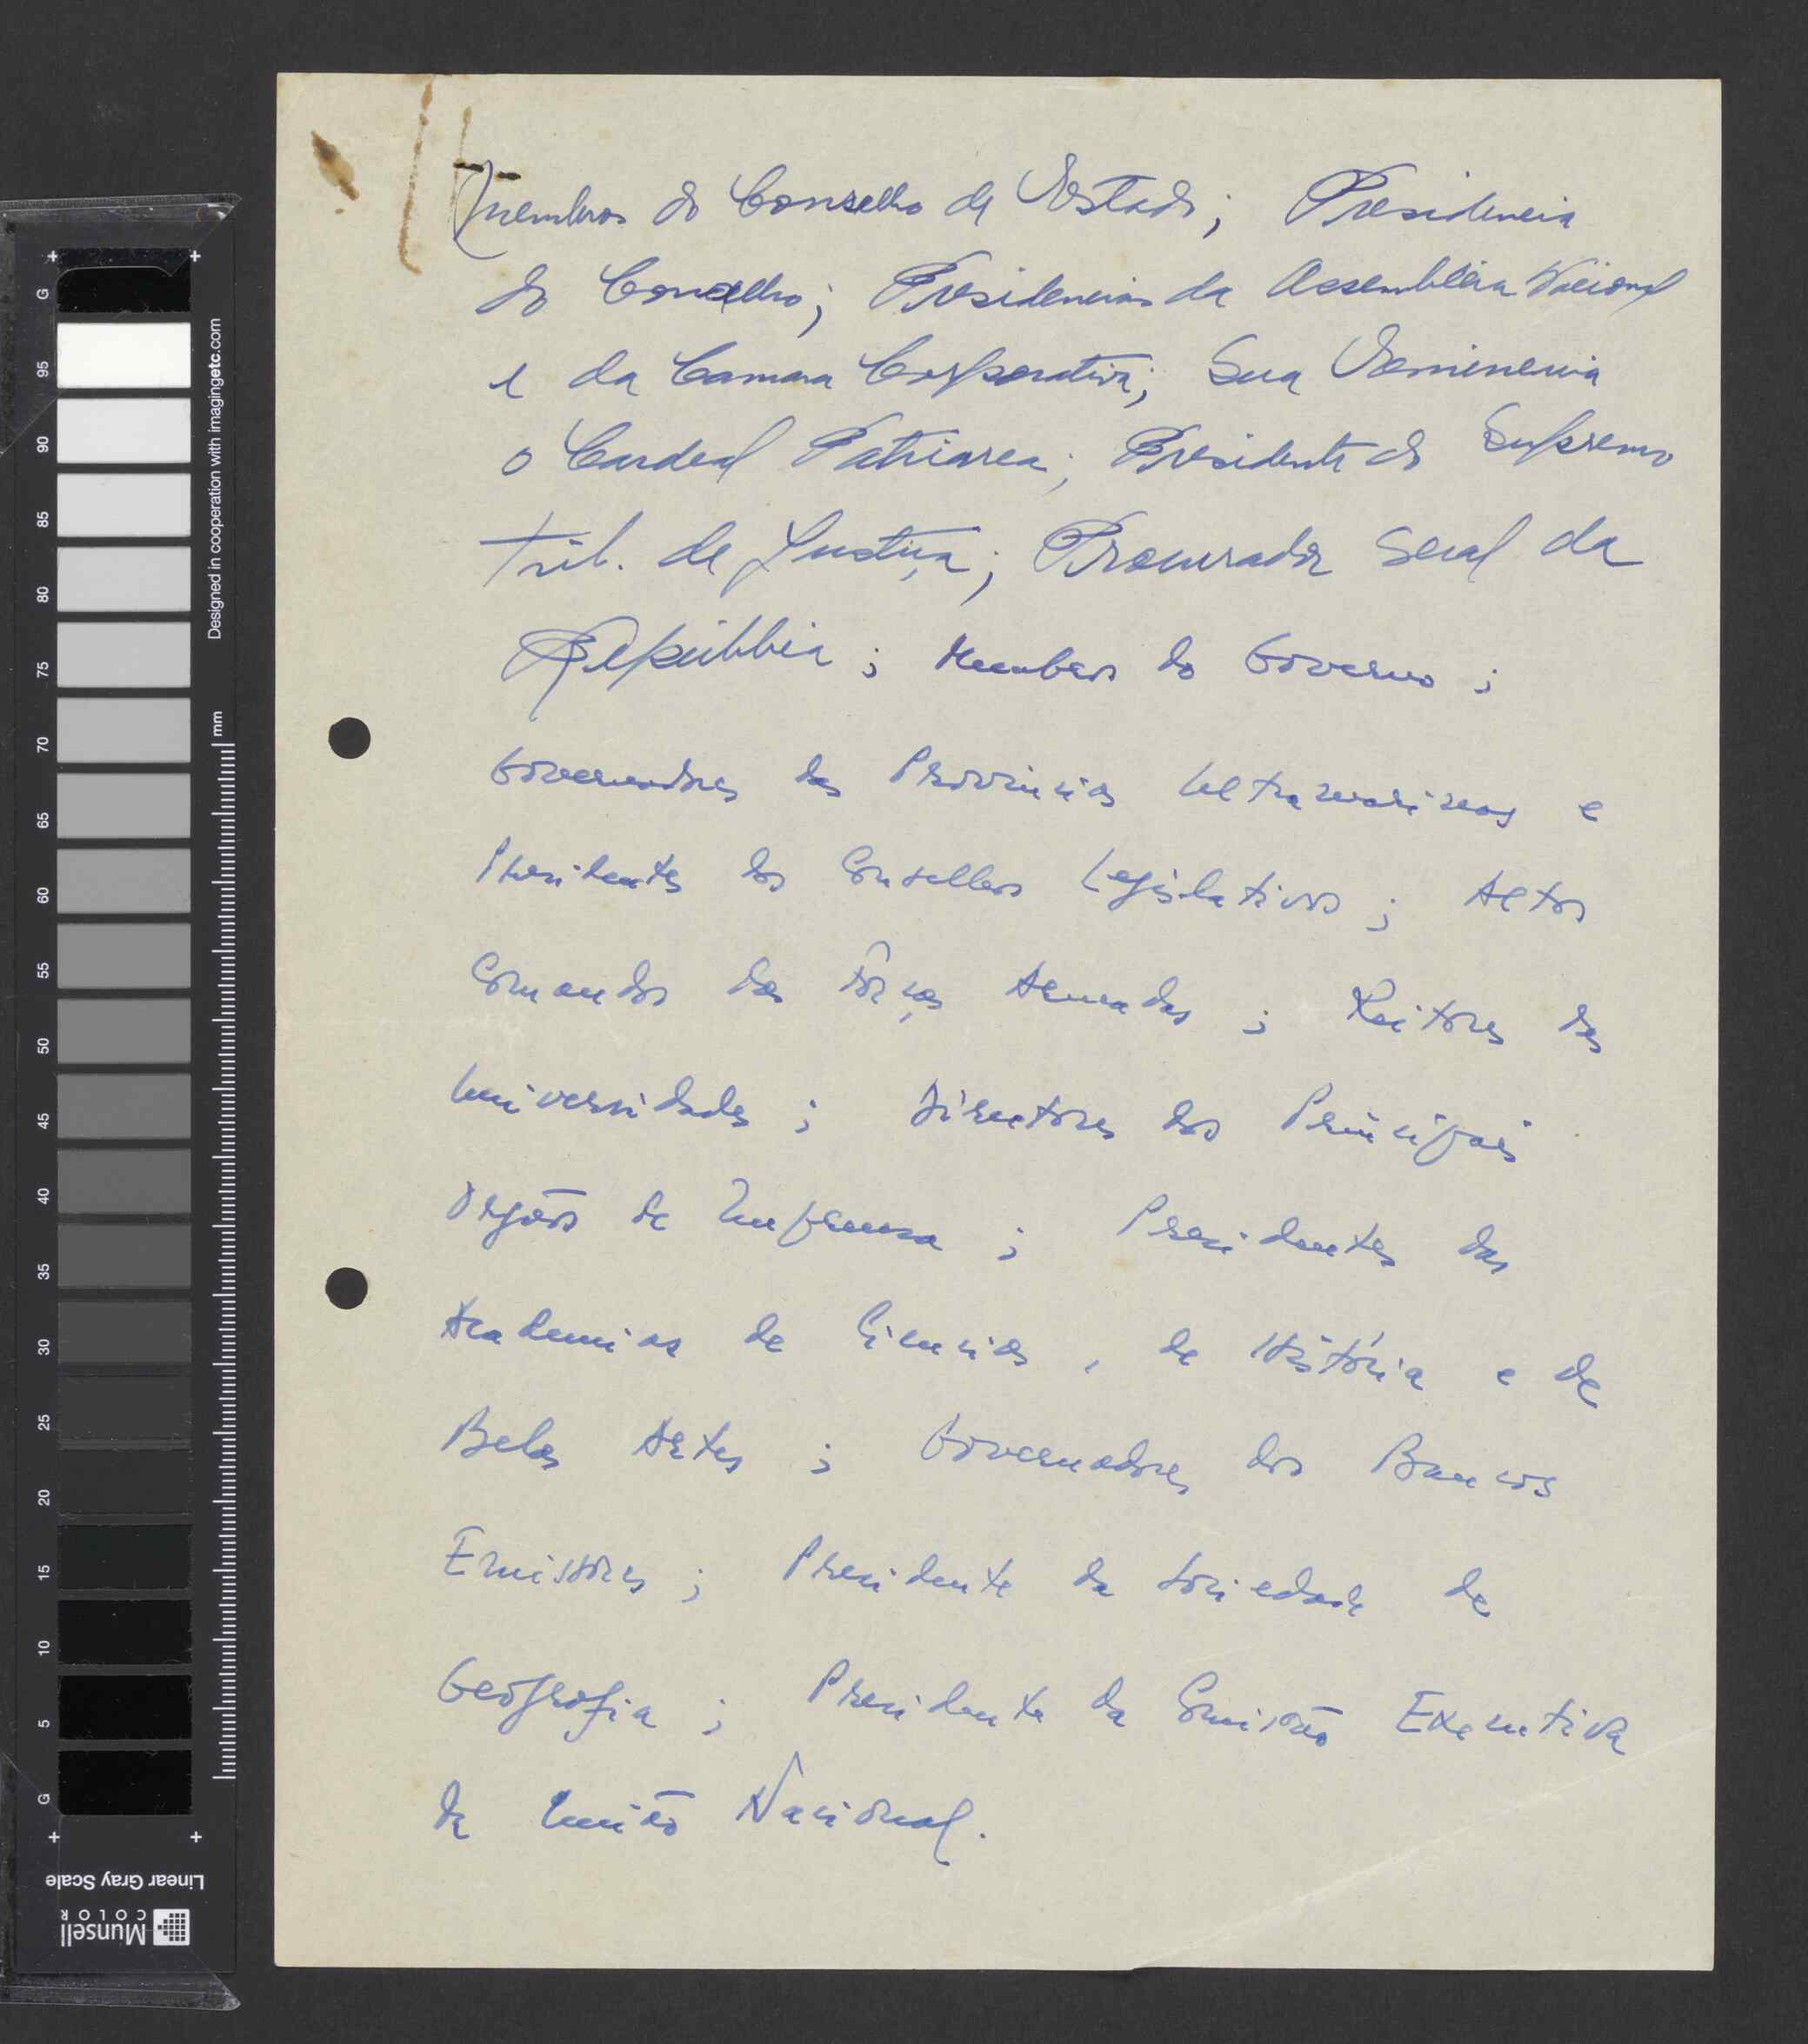 Membros do Conselho de Estado; Presidencia
do Conselho; Presidencias da Assembleia Nacional
e da Camara Corporativa; Sua Eeminencia
o Cardeal Patriarca; Presidente do Supremo
Trib. de Justiça; Procurador Geral da
República; Membros do Governo;
Governadores das Provincias Ultramarinas e
Presidentes dos Conselhos Legislativos; Altos
Comandos das Fôrças Armadas; Reitores das
Universidades; Directores dos Principais
Orgãos de Imprensa; Presidentes das
Academias de Ciencias, de História e de
Belas Artes; Governadores dos Bancos
Emissores; Presidente da Sociedade de
Geografia; Presidente da Comissão Executiva
da União Nacional.
Designed in cooperation with imagingetc.com
mm
G
95
90
85
80
75
70
65
60
55
50
45
40
35
30
25
20
15
10
5
G
Linear Gray Scale
Munsell
COLOR